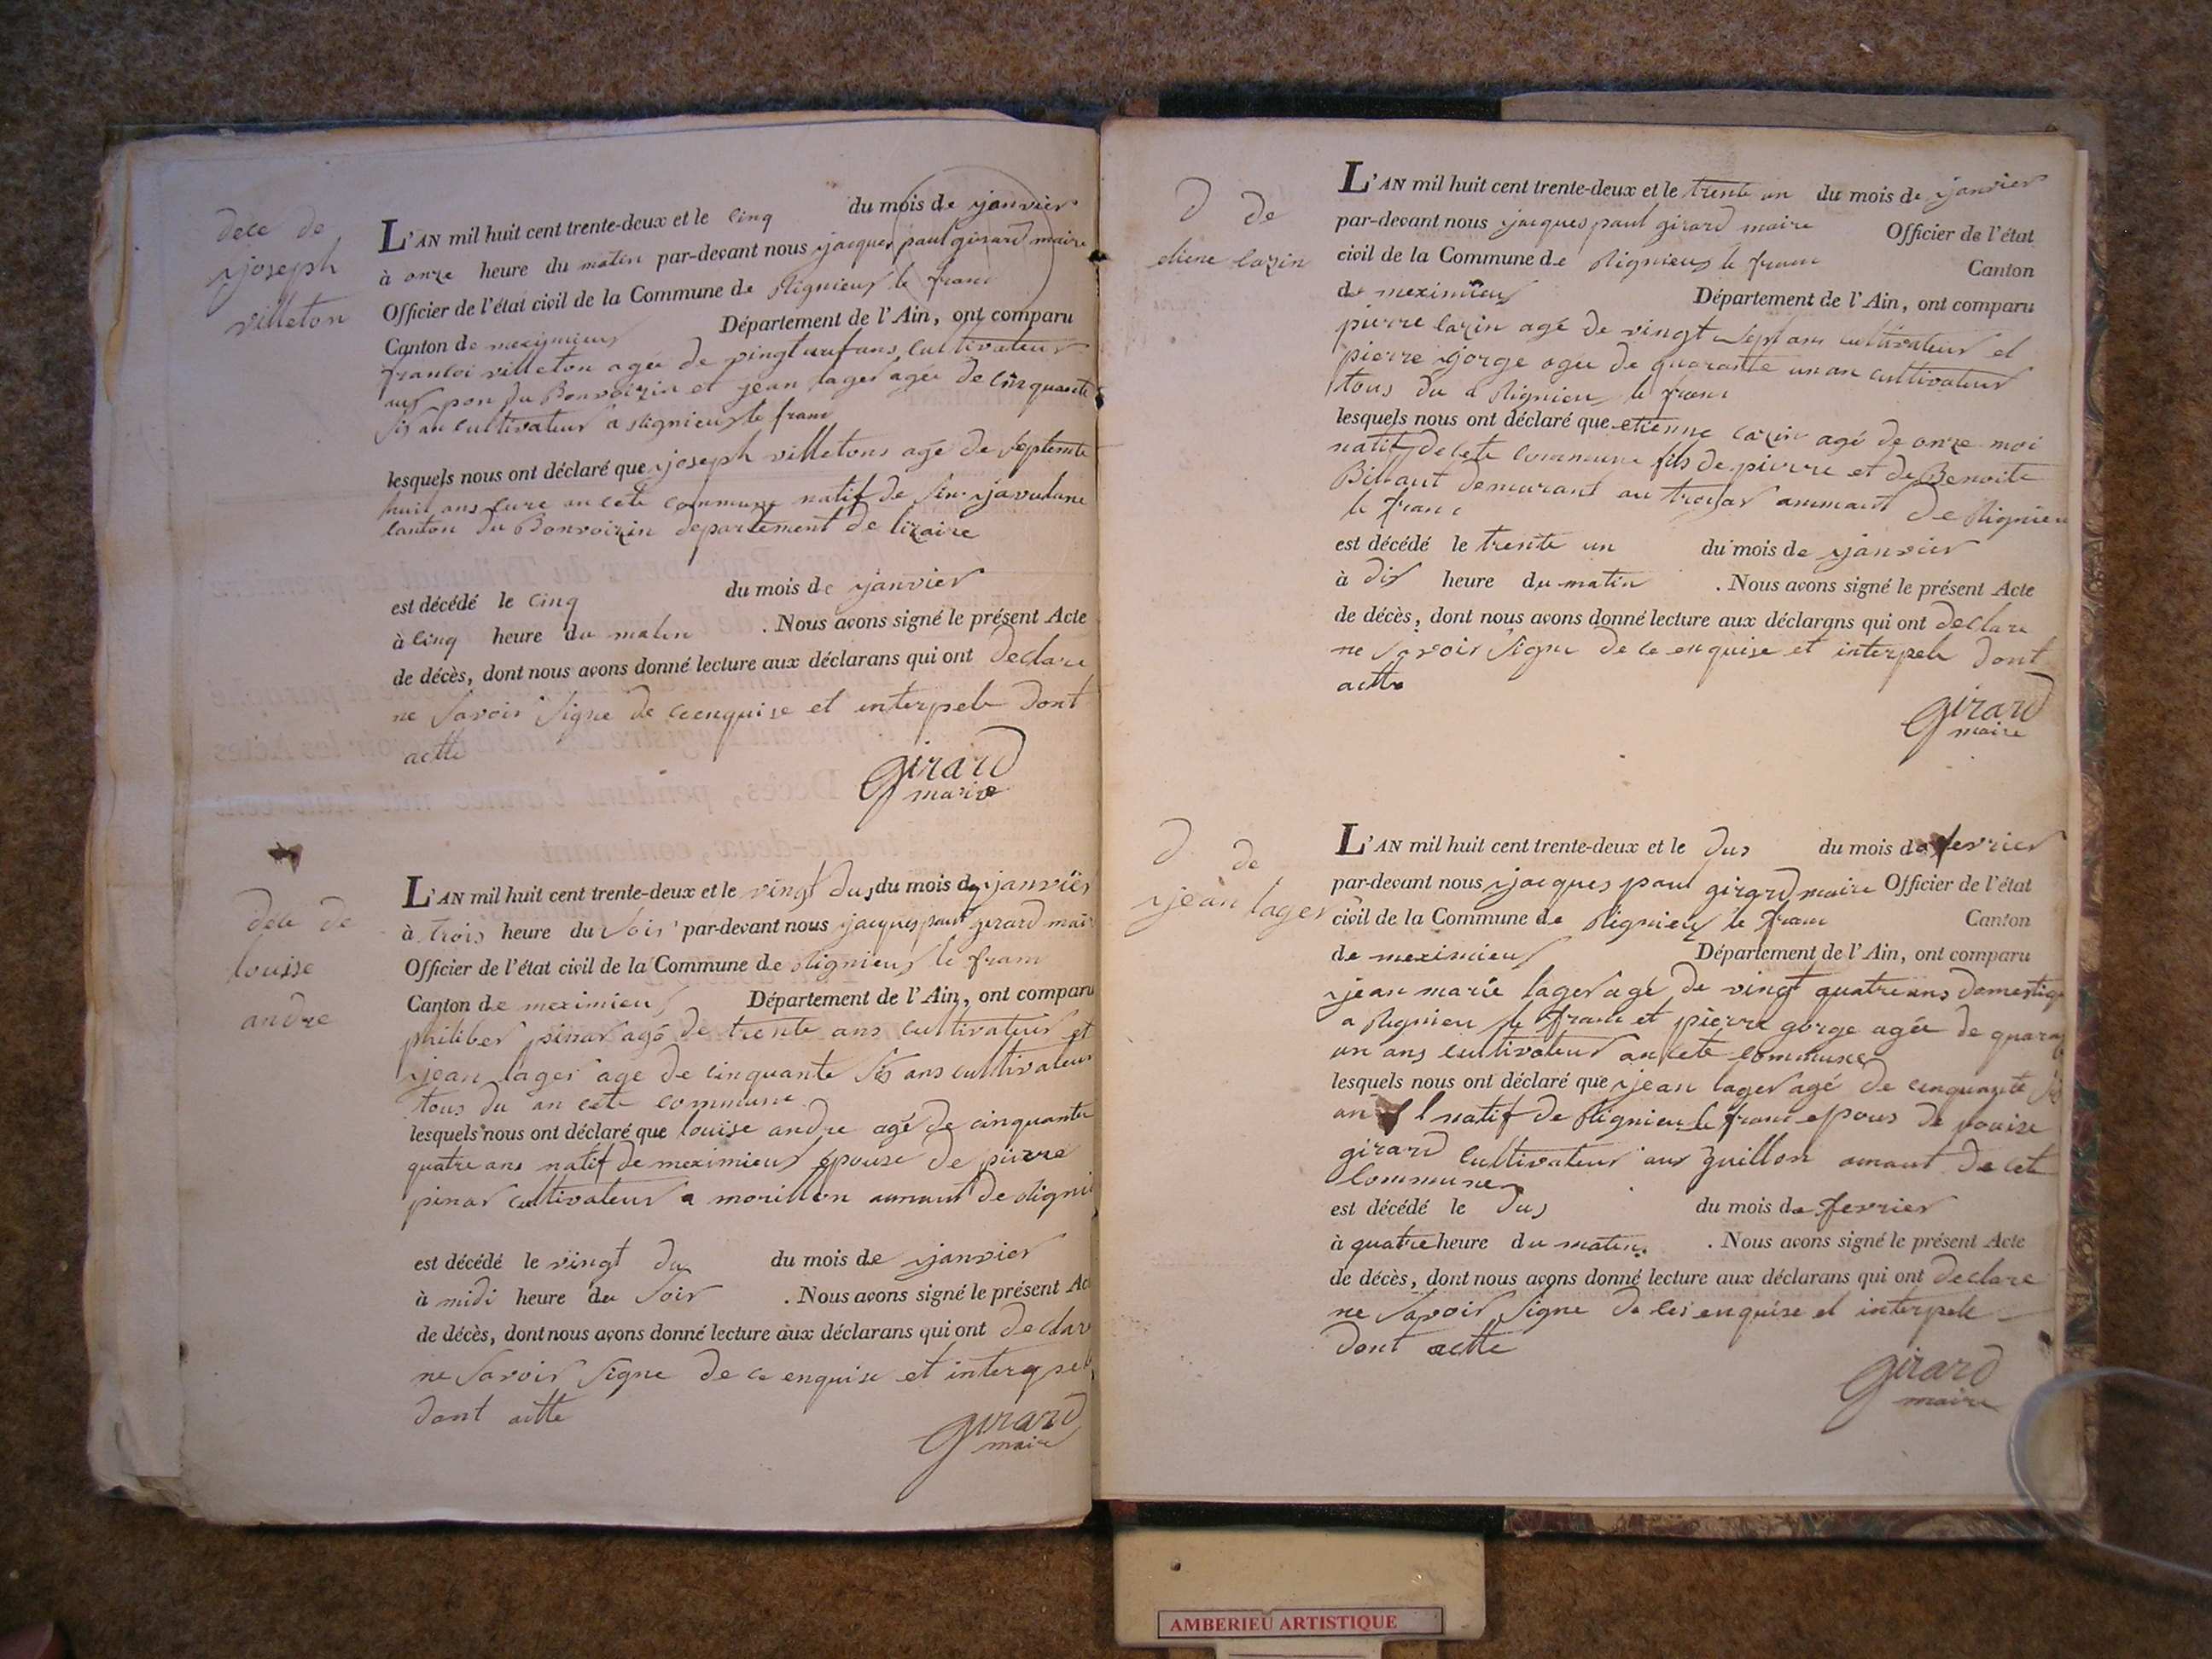 dece de
joseph
villeton
L'AN mil huit cent trente-deux et le cinq du mois de janvier
à onze heure du matin par-devant nous jacques paul girard maire
Officier de l'état civil de la Commune de Rignieux le franc
Canton de meximieux Département de l'Ain, ont comparu
francoi villeton agée de vingt neuf ans cultivateur
pon du Bonvoizin et jean lager agée de cinquante
sis an cultivateur a Rignieux le franc
lesquels nous ont déclaré que joseph villetons agé de septente
huit ans cure an cete commune natif de
canton du Bonvoizin departement de lizaire
est décédé le cinq du mois de janvier
à cinq heure du matin . Nous avons signé le présent Acte
de décès, dont nous avons donné lecture aux déclarans qui ont declare
ne savoir signe de ce enquise et interpele dont
actte
girard
maire
dece de
louise
andre
L'AN mil huit cent trente-deux et le vingt dus du mois de janvier
à trois heure du soir par-devant nous jacques paul girard mair
Officier de l'état civil de la Commune de Rignieux le franc
Canton de meximieux Département de l'Ain, ont comparu
philiber pinar agé de trente ans cultivateur et
jean lager age de cinquante sis ans cultivateur
tous du an cete commune
lesquels nous ont déclaré que louise andre agé de cinquante
quatre ans natif de meximieux epouse de pierre
pinar cultivateur a morillon de Rignie
est décédé le vingt du du mois de janvier
à midi heure du soir . Nous avons signé le présent Ac
de décès, dont nous avons donné lecture aux déclarans qui ont declar
ne savoir signe de ce enquise et interpel
dont actte
girard
maire
D de
etiene cazin
L'AN mil huit cent trente-deux et le trente un du mois de janvier
par-devant nous jacques paul girard maire Officier de l'état
civil de la Commune de Rignieux le franc Canton
de meximieux Département de l'Ain, ont comparu
pierre cazin age de vingt sept ans cultivateur et
pierre gorge agee de quarante un an cultivateur
tous du a Rignieu le franc
lesquels nous ont déclaré que etienne cazin agé de onze moi
natif de cete commune fils de pierre et de Benoite
Billaut demurant au de Rignieu
le franc
est décédé le trente un du mois de janvier
à dix heure du matin . Nous avons signé le présent Acte
de décès, dont nous avons donné lecture aux déclarans qui ont declare
ne savoir signe de ce enquise et interpele dont
actte
girard
maire
D de
jean lager
L'AN mil huit cent trente-deux et le dus du mois de fevrier
par-devant nous jacques paul girard maire Officier de l'état
civil de la Commune de Rignieux le franc Canton
de meximieux Département de l'Ain, ont comparu
jean marie lager agé de vingt quatre ans domestiq
a Rignieu le franc et pierre gorge agée de quaran
un ans cultivateur an cete commune
lesquels nous ont déclaré que jean lager agé de cinquante sis
an natif de Rignieu le franc epous de louise
girard cultivateur aux guillon de cet
commune
est décédé le dus du mois de fevrier
à quatre heure du matin . Nous avons signé le présent Acte
de décès, dont nous avons donné lecture aux déclarans qui ont declare
ne savoir signe de ces enquise et interpele
dont actte
girard
maire
AMBERIEU ARTISTIQUE